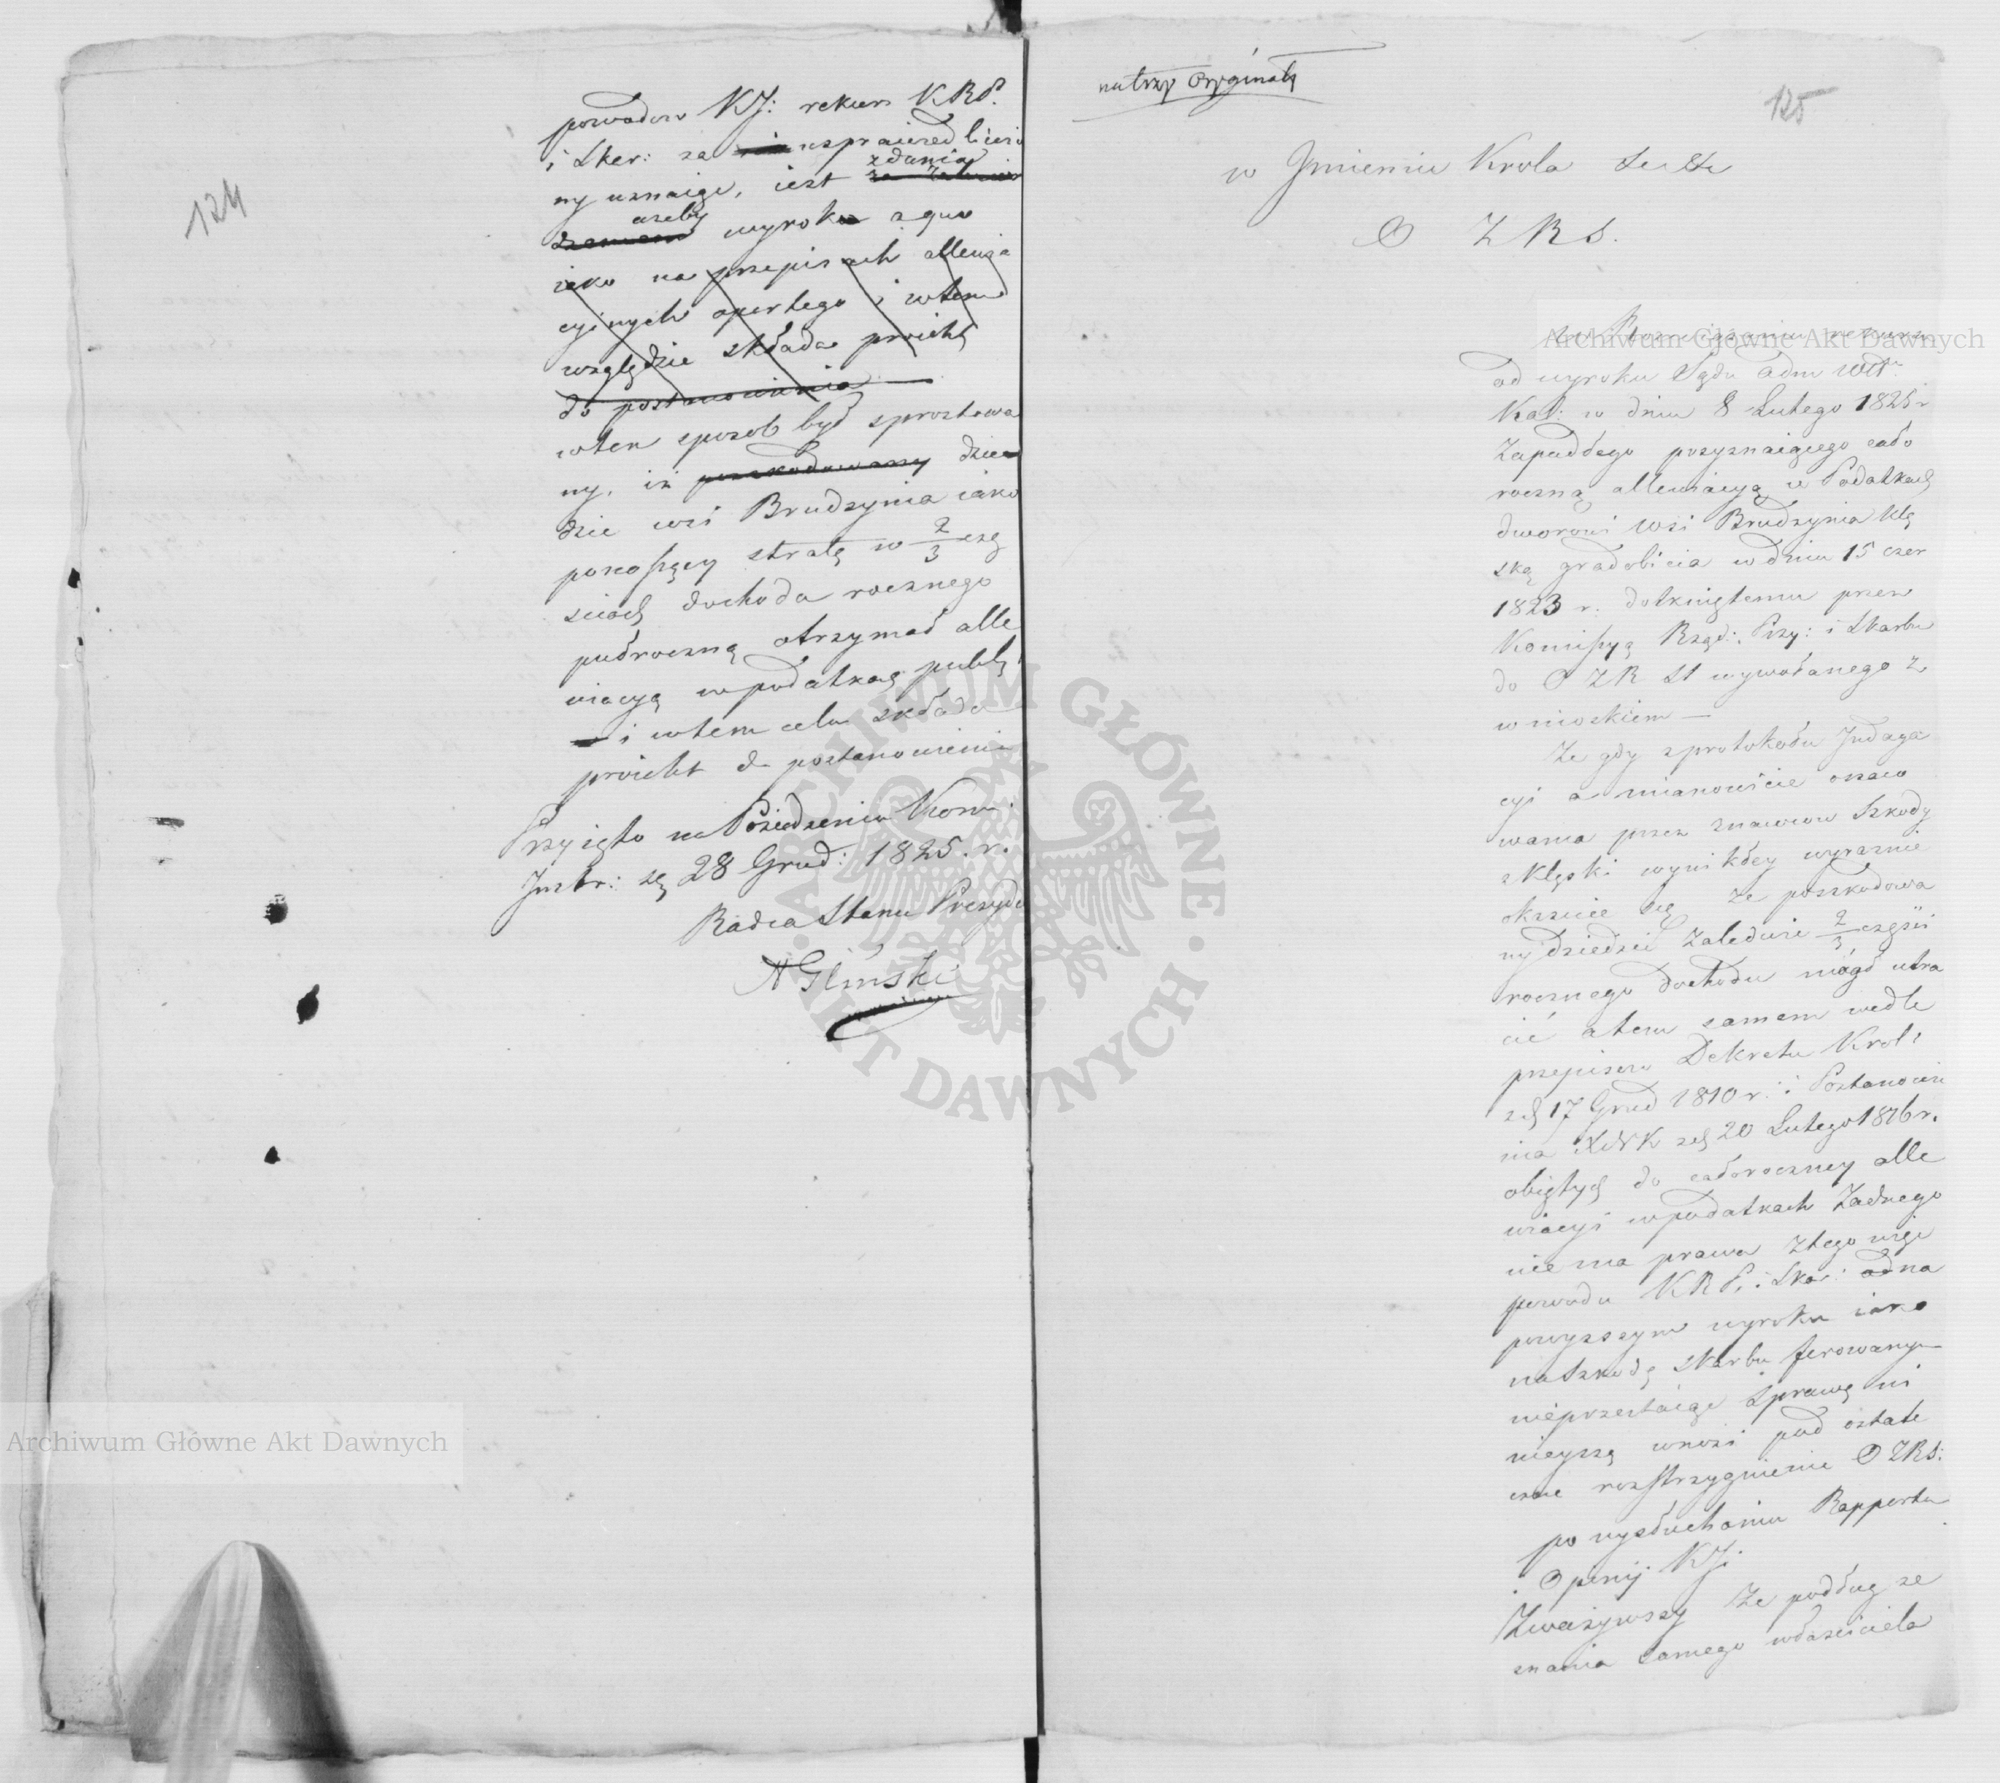 124
powodow KJ: rekurs KRP.
i Skar: za usprawiedliwio
ny uznaiąc, iest zdania
azeby wyrok a quo
iako na przepisach allewia
cyinych opartego i w tem
względzie składa proiekt
do postanowienia
w ten sposob był sprostowa
ny, iż poszkodowany dzie
dzic wsi Brudzynia iako
ponoszący stratę w 2/3 czę
sciach dochodu rocznego
pułroczną otrzymał alle
wiacyą w podatkach publ
i w tem celu składa
proiekt do postanowienia
Przyięto na Posiedzeniu Kom:
Instr: dnia 28 Grud: 1825. r.
Radca Stanu Prezydu
A Glinski
125
w Jmieniu Krola
O Z R S.
od wyroku Sądu Adm Wdt:
Kal: w dniu 8 Lutego 1825 r
zapadłego przyznaiącego cało
roczną allewiacyą w Podatkach
dworowi Wsi Brudzynia klę
ską gradobicia w dniu 15 czer
1823 r. dotkniętemu przez
Komissyą Rząd: Przy: i Skarbu
do O Z R St wywołanego z
wnioskiem —
Ze gdy z protokołu Jndaga
cyi a mianowicie oszaco
wania przez znawcow szkody
z klęski wynikłey wyraznie
okazuie się ze poszkodowa
ny dziedzic zaledwie 2/3 części
rocznego dochodu mógł utra
cić a tem samem wedle
przepisow Dekretu Krol:
z d. 17 Grud 1810 r. i Postanowie
nia XNK z d. 20 Lutego 1816 r.
obiętych do całoroczney alle
wiacyi w podatkach żadnego
nie ma prawa z tego więc
powodu KRP. i Skar: na
powyzszym wyroku iako
na szkodę Skarbu ferowanym
nieprzestaiąc sprawę ni
nieyszą wnosi pod ostate
czne rozstrzygnienie O ZRS:
po wysłuchaniu Rapportu
i Opinij KJ:
Zwazywszy ze podług ze
znania samego właściciela
Archiwum Główne Akt Dawnych
Archiwum Główne Akt Dawnych
ARCHIWUM GŁÓWNE
· AKT DAWNYCH ·